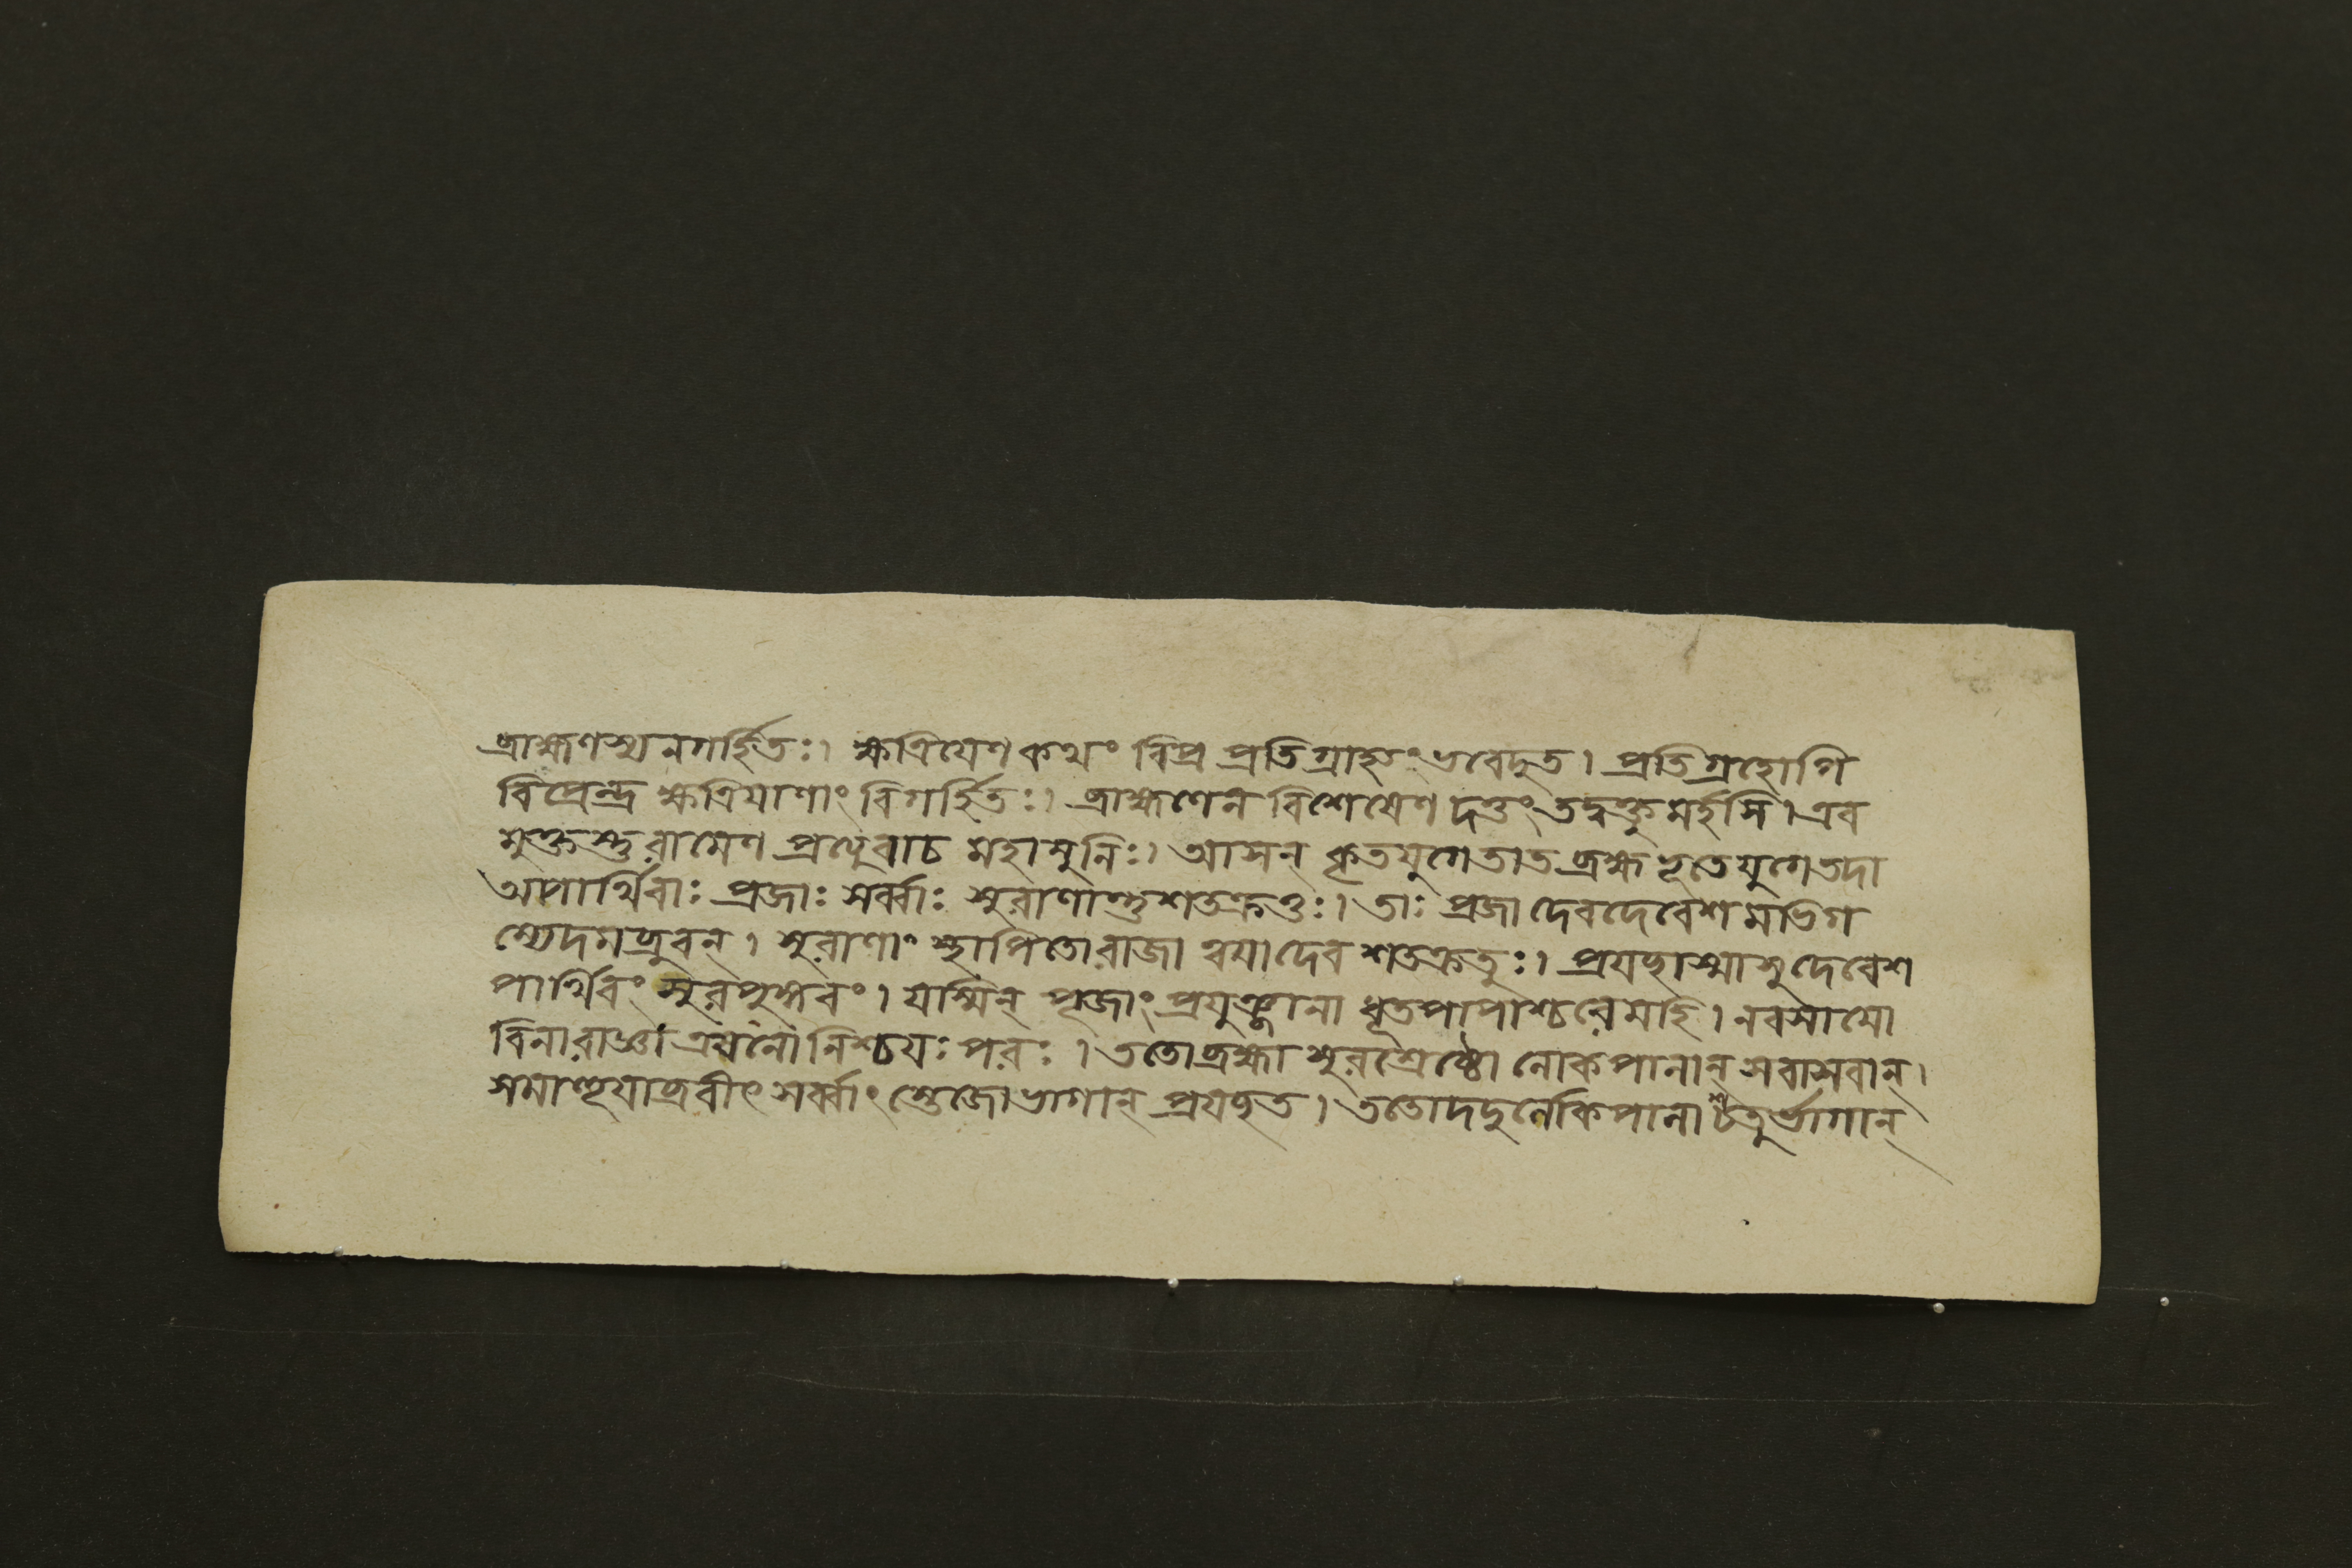 ব্রাহ্মণস্যনগর্হিতঃ। ক্ষত্রিয়েণকথং বিপ্র প্রতিগ্রাহ্যংভবেদুত। প্রতিগ্রহোপি
বিপ্রেন্দ্র ক্ষত্রিয়াণাং বিগর্হিতঃ। ব্রাহ্মণেন বিশেষেণ দত্তং তদ্বক্তুমর্হসি। এব
মুক্তস্তুরামেণ প্রত্যুবাচ মহামুনিঃ। আসন্ কৃতযুগেতাত ব্রহ্মভূতেযুগেতদা
অপার্থিবাঃ প্রজাঃ সর্ব্বাঃ সুরাণান্তুশতক্রতুঃ। তাঃ প্রজা দেবদেবেশমভিগ
ম্যেদমব্রুবন্। সুরাণাং স্থাপিতোরাজা ত্বয়াদেব শতক্রতুঃ। প্রযচ্ছাস্মাসুদেবেশ
পার্থিবং সুরপুঙ্গবং। যস্মিন্ পূজাং প্রযুঞ্জানা ধূতপাপাশ্চরেমহি। নবসামো
বিনারাজ্ঞা এষনো নিশ্চয়ঃ পরঃ। ততোব্রহ্মা সুরশ্রেষ্ঠো লোকপালান্ সবাসবান্।
সমাহূয়াব্রবীৎ সর্ব্বাংস্তেজোভাগান্ প্রযচ্ছত। ততোদদুর্লোকপালাশ্চতুর্ভাগান্